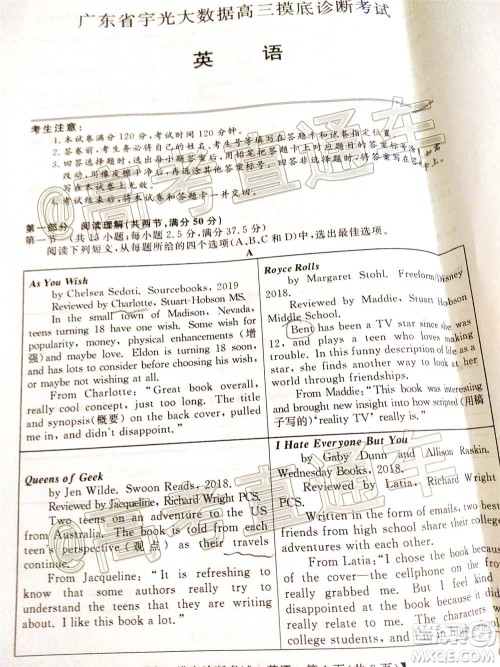 广东省宇光大数据高三摸底诊断考试
英 语
考生注意：
1.本试卷满分120分，考试时间120分钟。
2.答卷前，考生务必将自己的姓名、考生号等填写在答题卡和试卷指定位置。
3.回答选择题时，选出每小题答案后，用铅笔把答题卡上对应题目的答案标号涂黑。如需
改动，用橡皮擦干净后，再选涂其他答案标号。回答非选择题时，将答案写在答题卡上。
写在本试卷上无效。
4.考试结束后，将本试卷和答题卡一并交回。
第一部分 阅读理解(共两节，满分50分)
第一节 (共15小题；每小题2.5分，满分37.5分)
阅读下列短文，从每题所给的四个选项(A、B、C和D)中，选出最佳选项。
A
As You Wish
by Chelsea Sedoti. Sourcebooks, 2019
Reviewed by Charlotte, Stuart-Hobson MS.
In the small town of Madison, Nevada,
teens turning 18 have one wish. Some want
popularity, money, physical enhancements (增
强) and maybe love. Eldon is turning 18 soon,
and has lots to consider before choosing his wish,
or not wishing at all.
From Charlotte: "Great book overall,
really cool concept, just too long. The title
and synopsis(概要) on the back cover, pulled
me in, and didn't disappoint."
Royce Rolls
by Margaret Stohl. Freeform/Disney
2018.
Reviewed by Maddie, Stuart Hobson
Middle School.
Bent has been a TV star since she was
12, and plays a teen who loves making
trouble. In this funny description of life as a
star, she finds another way to look at her
world through friendships.
From Maddie: "This book was interesting
and brought new insight into how scripted (用稿
子写的)'reality TV' really is."
Queens of Geek
by Jen Wilde. Swoon Reads, 2018.
Reviewed by Jacqueline, Richard Wright PCS.
Two teens on an adventure to the US
from Australia. The book is told from each
teen's perspective (观点) as their travels
continue.
From Jacqueline: "It is refreshing to
know that some authors really try to
understand teenagers the way they are.
I like this book a lot."
I Hate Everyone But You
by Gaby Dunn and Allison Raskin.
Wednesday Books, 2018.
Reviewed by Latia, Richard Wright
PCS.
Written in the form of emails, two best
friends from high school share their college
adventures with each other.
From Latia: "I picked this book because
of the cover—the cellphone on the front
really grabbed me. But I feel kind of
disappointed at the
the characters
college students, and
students."
高考直通车